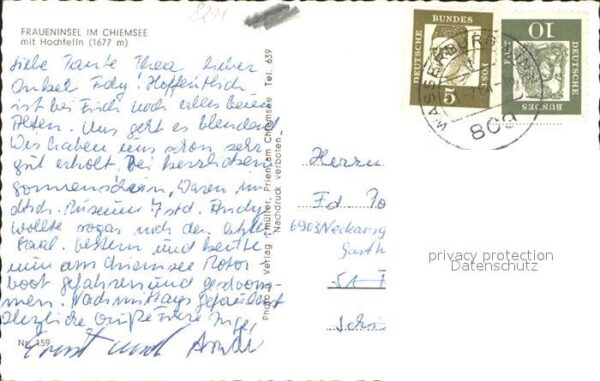 821
FRAUENINSEL IM CHIEMSEE
mit Hochfelln (1677 m)
Liebe Tante Thea lieber
Onkel Edy! Hoffentlich
ist bei Euch noch alles beim
Alten. Uns geht es blendend
Wir haben uns schon sehr
gut erholt. Bei herrlichem
Sonnenschein. Waren im
dtsch. Museum 7 Std. Andy
wollte sogar noch den letzten
Saal. Gestern und heute
nun am Chiemsee Motor-
boot gefahren und geschwom-
men. Nachmittags gefaulenzt
Herzliche Grüße Eure Inge,
Ernst und
Nr. 159
Photo Verlag Thüller, Prien am Chiemsee Tel. 639
Nachdruck verboten
DEUTSCHE
BUNDES
POST
5
DEUTSCHE
BUNDES
POST
10
WASSERBURG (INN)
809
Herrn
Ed
6903 Neckarg
Gasth
privacy protection
Datenschutz